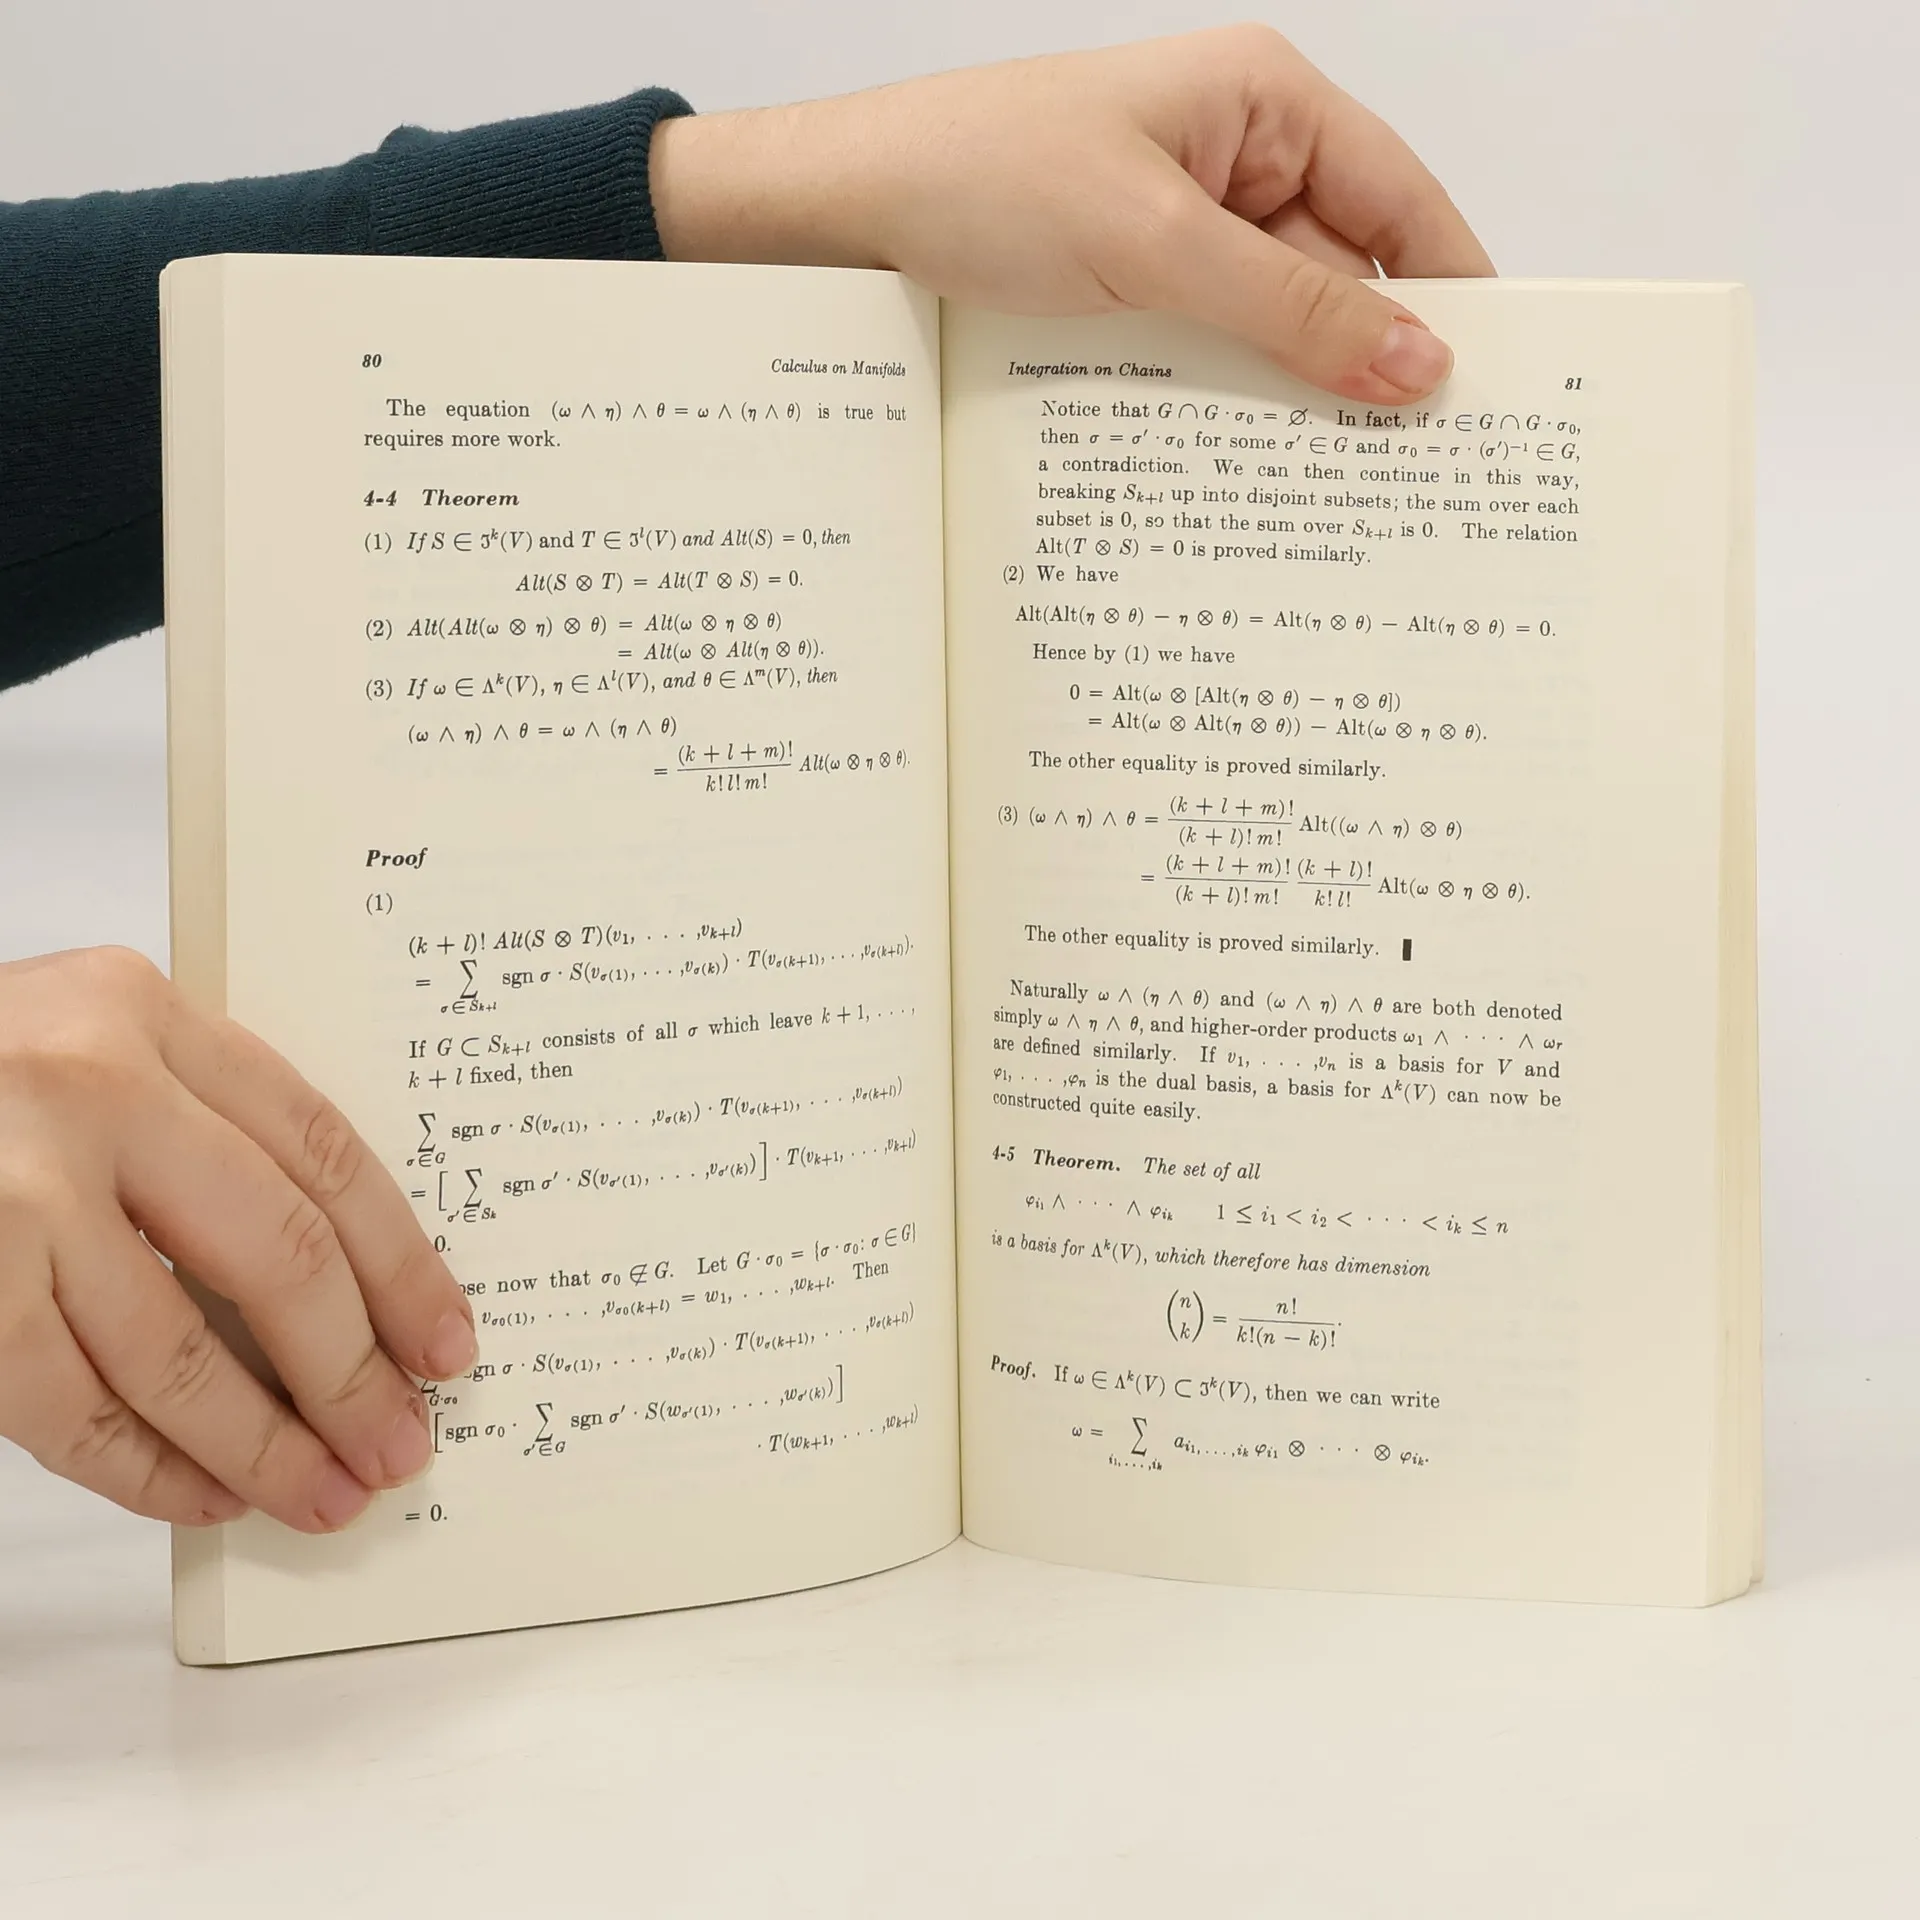 80
Calculus on Manifolds
The equation (ω ∧ η) ∧ θ = ω ∧ (η ∧ θ) is true but
requires more work.
4-4 Theorem
(1) If S ∈ 𝔍ᵏ(V) and T ∈ 𝔍ˡ(V) and Alt(S) = 0, then
Alt(S ⊗ T) = Alt(T ⊗ S) = 0.
(2) Alt(Alt(ω ⊗ η) ⊗ θ) = Alt(ω ⊗ η ⊗ θ)
= Alt(ω ⊗ Alt(η ⊗ θ)).
(3) If ω ∈ Λᵏ(V), η ∈ Λˡ(V), and θ ∈ Λᵐ(V), then
(ω ∧ η) ∧ θ = ω ∧ (η ∧ θ)
= (k + l + m)! / k! l! m! Alt(ω ⊗ η ⊗ θ).
Proof
(1)
(k + l)! Alt(S ⊗ T)(v₁, . . . ,v_{k+l})
= ∑_{σ∈S_{k+l}} sgn σ · S(v_{σ(1)}, . . . ,v_{σ(k)}) · T(v_{σ(k+1)}, . . . ,v_{σ(k+l)}).
If G ⊂ S_{k+l} consists of all σ which leave k + 1, . . . ,
k + l fixed, then
∑_{σ∈G} sgn σ · S(v_{σ(1)}, . . . ,v_{σ(k)}) · T(v_{σ(k+1)}, . . . ,v_{σ(k+l)})
= [∑_{σ'∈S_k} sgn σ' · S(v_{σ'(1)}, . . . ,v_{σ'(k)})] · T(v_{k+1}, . . . ,v_{k+l})
0.
now that σ₀ ∉ G. Let G · σ₀ = {σ · σ₀: σ ∈ G}
v_{σ₀(1)}, . . . ,v_{σ₀(k+l)} = w₁, . . . ,w_{k+l}. Then
σ · S(v_{σ(1)}, . . . ,v_{σ(k)}) · T(v_{σ(k+1)}, . . . ,v_{σ(k+l)})
G·σ₀
[sgn σ₀ · ∑_{σ'∈G} sgn σ' · S(w_{σ'(1)}, . . . ,w_{σ'(k)})]
· T(w_{k+1}, . . . ,w_{k+l})
= 0.
Integration on Chains
81
Notice that G ∩ G · σ₀ = ∅. In fact, if σ ∈ G ∩ G · σ₀,
then σ = σ' · σ₀ for some σ' ∈ G and σ₀ = σ · (σ')⁻¹ ∈ G,
a contradiction. We can then continue in this way,
breaking S_{k+l} up into disjoint subsets; the sum over each
subset is 0, so that the sum over S_{k+l} is 0. The relation
Alt(T ⊗ S) = 0 is proved similarly.
(2) We have
Alt(Alt(η ⊗ θ) − η ⊗ θ) = Alt(η ⊗ θ) − Alt(η ⊗ θ) = 0.
Hence by (1) we have
0 = Alt(ω ⊗ [Alt(η ⊗ θ) − η ⊗ θ])
= Alt(ω ⊗ Alt(η ⊗ θ)) − Alt(ω ⊗ η ⊗ θ).
The other equality is proved similarly.
(3) (ω ∧ η) ∧ θ = (k + l + m)! / (k + l)! m! Alt((ω ∧ η) ⊗ θ)
= (k + l + m)! / (k + l)! m! (k + l)! / k! l! Alt(ω ⊗ η ⊗ θ).
The other equality is proved similarly. ▮
Naturally ω ∧ (η ∧ θ) and (ω ∧ η) ∧ θ are both denoted
simply ω ∧ η ∧ θ, and higher-order products ω₁ ∧ · · · ∧ ω_r
are defined similarly. If v₁, . . . ,v_n is a basis for V and
φ₁, . . . ,φ_n is the dual basis, a basis for Λᵏ(V) can now be
constructed quite easily.
4-5 Theorem. The set of all
φ_{i₁} ∧ · · · ∧ φ_{i_k} 1 ≤ i₁ < i₂ < · · · < i_k ≤ n
is a basis for Λᵏ(V), which therefore has dimension
(n k) = n! / k!(n − k)!.
Proof. If ω ∈ Λᵏ(V) ⊂ 𝔍ᵏ(V), then we can write
ω = ∑_{i₁, . . . ,i_k} a_{i₁, . . . ,i_k} φ_{i₁} ⊗ · · · ⊗ φ_{i_k}.